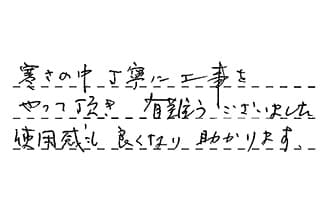 寒さの中丁寧に工事を
やって頂き 有難うございました
使用感も良くなり助かります。